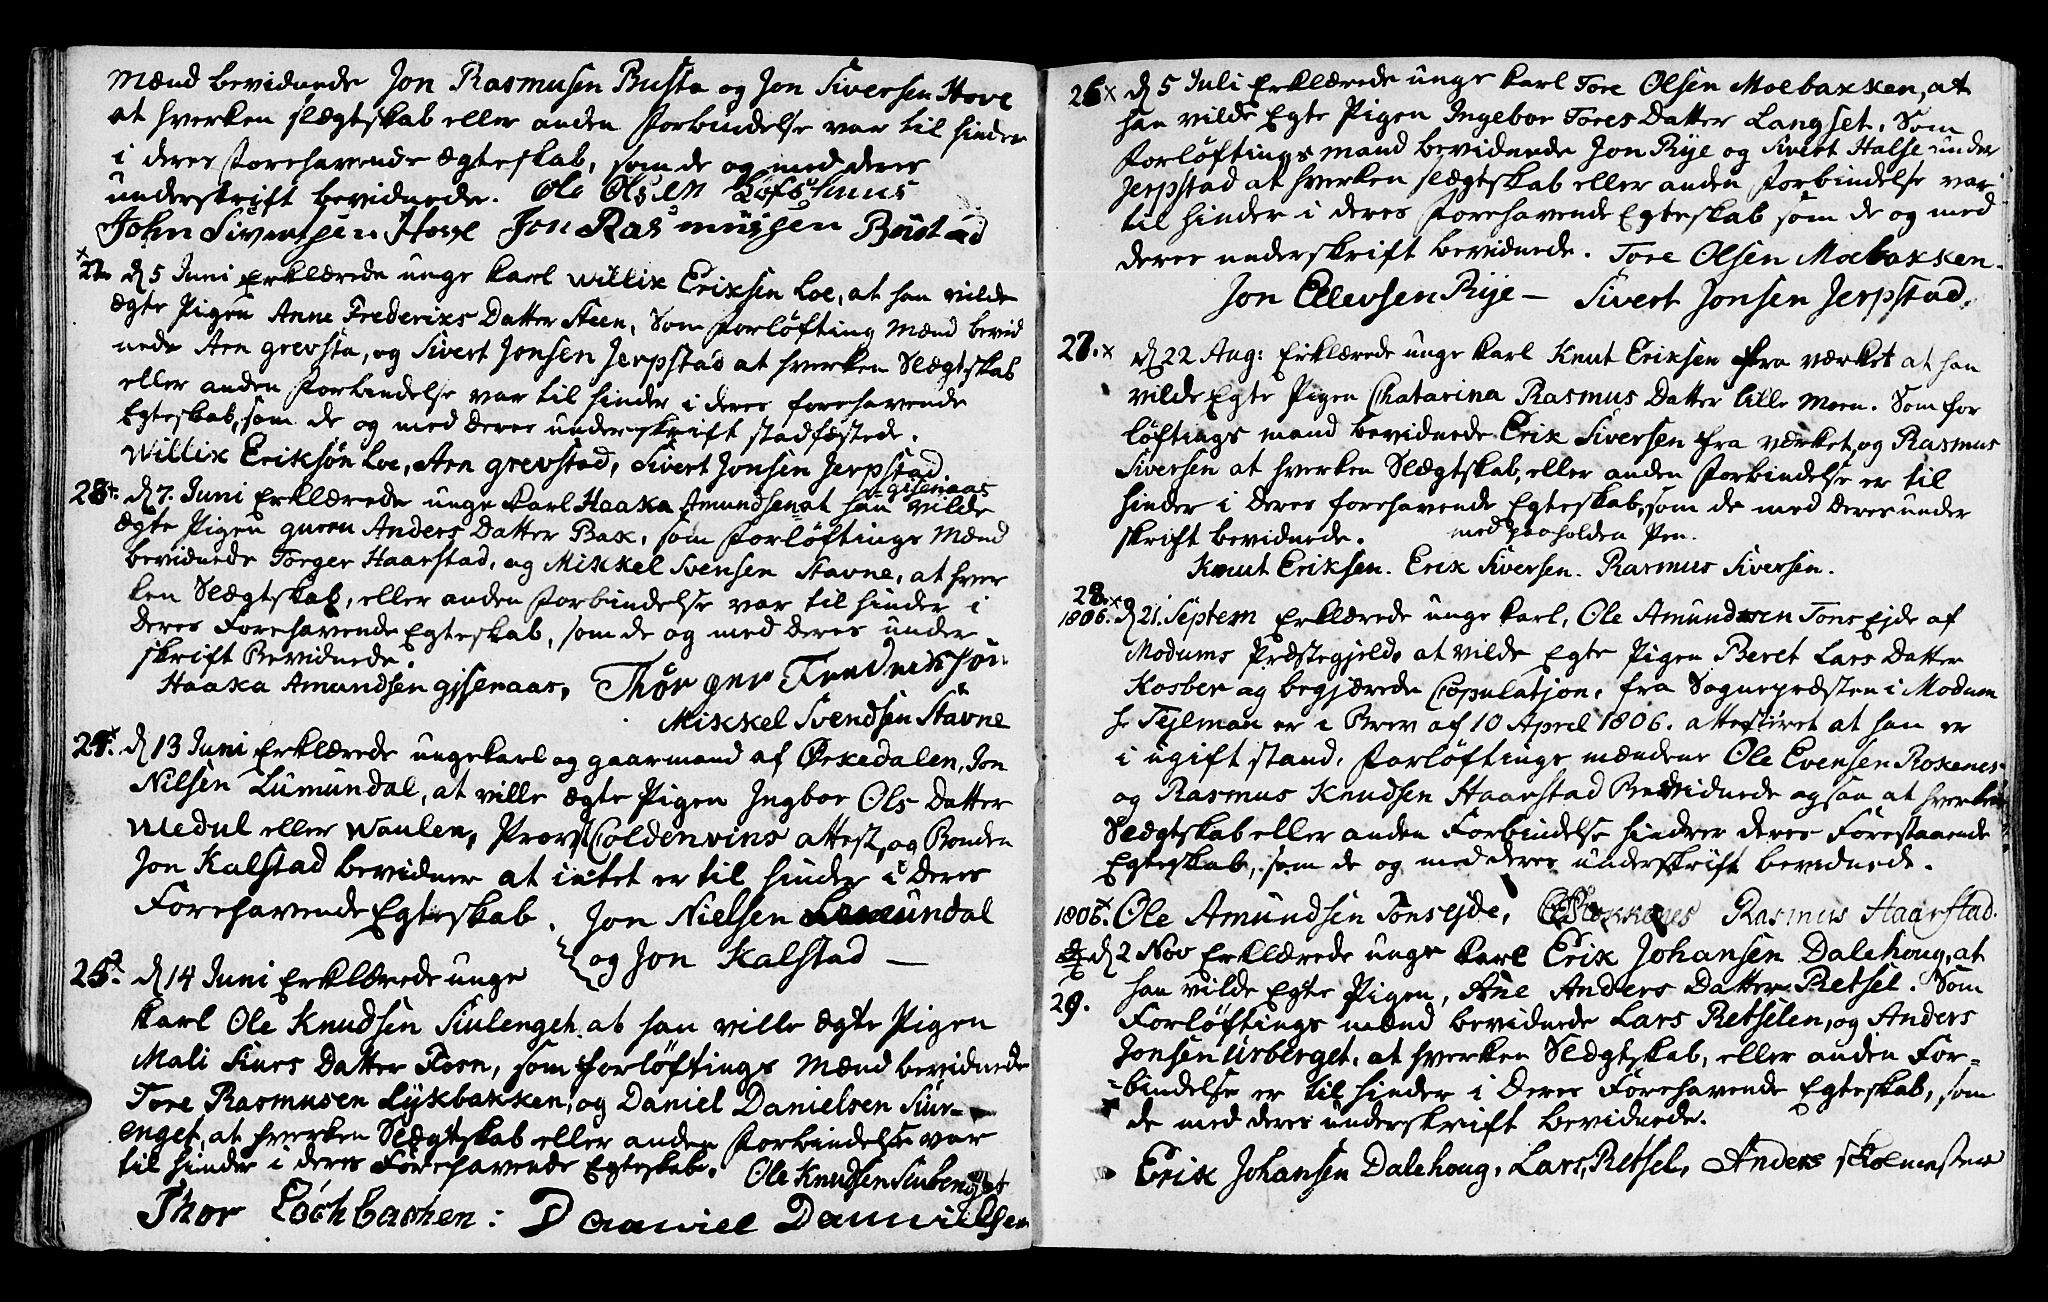 Mænd bevidnede Jon Rasmusen Busta og Jon Siversen Hove
at hverken slægtskab eller anden forbindelse var til hinder
i deres forehavende ægteskab, som de og med deres
underskrift bevidnede. Ole Olsen
John Sivertsen Hove Jon Rasmussen Bustad
22. d 5 Juni Erklærede unge Karl Willix Eriksen Loe, at han vilde
ægte Pigen Anne Frederiks Datter Steen, Som forløfting Mænd bevid
nede Arn grevsta, og Sivert Jonsen Jerpstad at hverken Slægtskab
eller anden forbindelse var til hinder i deres forehavende
Egteskab, som de og med deres underskrift stadfæstede.
Willix Eriksøn Loe, Arn grevstad, Sivert Jonsen Jerpstad
23. d 7. Juni Erklærede unge Karl Haaka Amundsen gisenaas at han vilde
ægte Pigen guron Anders Datter Bax, som forløftings Mænd
bevidnede Torger Haarstad, og Mikkel Svensen Stavne, at hver
ken Slægtskab, eller anden forbindelse var til hinder i
deres Forehavende Egteskab, som de og med deres under
skrift Bevidnede.
Haaka Amundsen gisenaas,
Mikkel Svendsen Stavne
24. d 13 Juni Erklærede ungekarl og gaarmand af Ørkedalen, Jon
Nilsen Lumundal, at ville ægte Pigen Ingbor Ols Datter
Medul eller Waulen, Provst Coldevins attest, og Bonden
Jon Kalstad bevidner at intet er til hinder i deres
Forehavende Egteskab. Jon Nielsen Lumundal
og Jon Kalstad —
25. d 14 Juni Erklærede unge
Karl Ole Knudsen Siulenget at han ville ægte Pigen
Mali Siurs Datter Fosn, som forløftings Mænd bevidnede
Tore Rasmusen Lykbakken, og Daniel Danielsen Siur-
enget, at hverken Slægtskab eller anden forbindelse var
til hinder i deres Forehavende Egteskab. Ole Knudsen
Thor Daaniel Danniellsen
26 x d 5 Juli Erklærede unge Karl Tore Olsen Moebakken, at
han vilde Egte Pigen Ingebor Tores Datter Langset. Som
forløftings mænd bevidnede Jon Rije og Sivert Halse under
Jerpstad at hverken slægtskab eller anden forbindelse var
til hinder i deres forehavende Egteskab som de og med
deres underskrift bevidnede. Tore Olsen Moebakken.
Jon Ellevsen Rije — Sivert Jonsen Jerpstad.
27. x d 22 Aug: Erklærede unge Karl Knut Eriksen fra værket at han
vilde Egte Pigen Chatarina Rasmus Datter lille Moen. Som for
løftings mænd bevidnede Erik Siversen fra værket, og Rasmus
Siversen at hverken Slægtskab, eller anden forbindelse er til
hinder i deres forehavende Egteskab, som de med deres under
skrift bevidnede. med paaholden Pen.
Knut Eriksen. Erik Siversen. Rasmus Siversen.
28. x
1806. d 21. Septem Erklærede unge Karl, Ole Amundsen Tons Ejde af
Modums Præstegjeld, at vilde Egte Pigen Beret Lars Datter
Kosber og begjærede Copulatjon, fra Sognepræsten i Modum
hr Tejlman er i Brev af 10 April 1806. attestiret at han er
i ugift stand, forløftings mændene Ole Evensen Roxenes
og Rasmus Knudsen Haarstad Bevidnede ogsaa at hverken
Slægtskab eller anden Forbindelse hindrer deres Forestaaende
Egteskab, som de og med deres underskrift bevidnede.
1806. Ole Amundsen Tonsejde, Rasmus Haarstad.
d 2 Nov Erklærede unge Karl Erik Johansen Dalehoug, at
29. han vilde Egte Pigen, Ane Anders Datter Retsel. Som
Forløftings mænd bevidnede Lars Retselen, og Anders
Jonsen Urberget, at hverken Slægtskab, eller anden For-
bindelse er til hinder i deres Forehavende Egteskab, som
de med deres underskrift bevidnede.
Erik Johansen Dalehoug, Lars Retsel, Anders skolemester